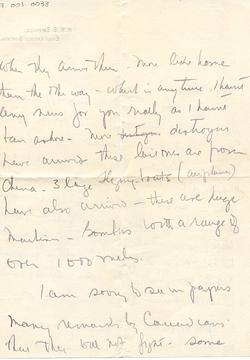 001.0033
When they arrive there - More like home
than the other way - what is anytime. I haven't
any news for you really as I haven't
been ashore - More destroyers
have arrived these last ones are from
China - 3 large flying-boats (airplanes)
have also arrived - these are huge
machines - Bombers with a range of
over 1000 miles.
I am sorry to see in papers
many remarks by Canadians
that they will not fight - some